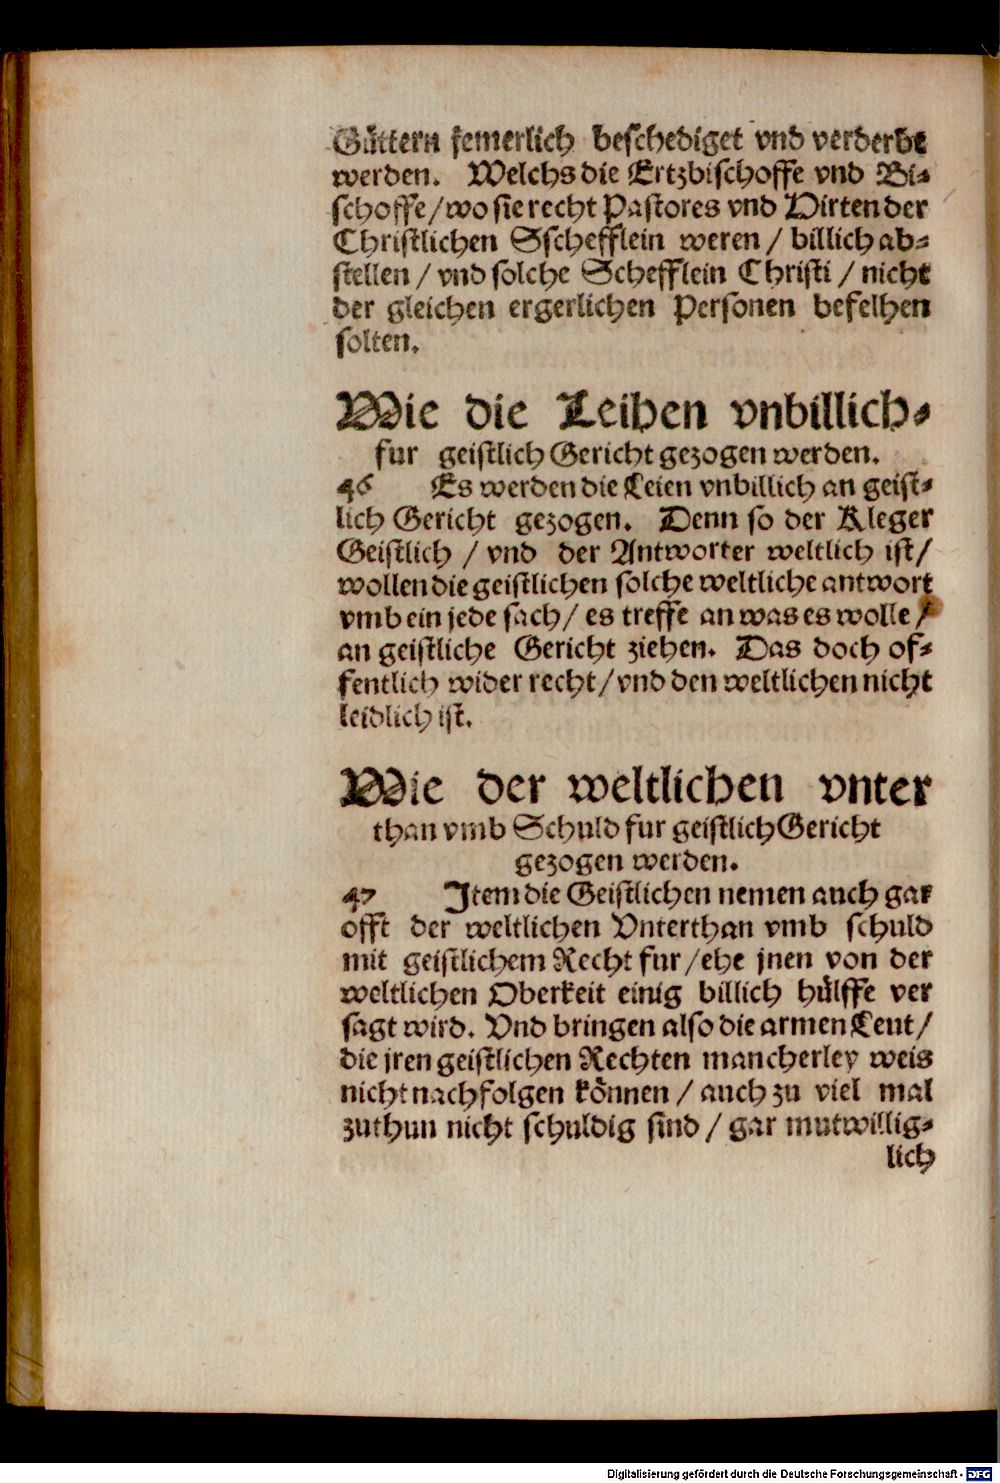 Güttern femerlich beschediget vnd verderbt
werden. Welchs die Ertzbischoffe vnd Bi-
schoffe/wo sie recht Pastores vnd Hirten der
Christlichen Sschefflein weren / billich ab-
stellen / vnd solche Schefflein Christi / nicht
der gleichen ergerlichen Personen befelhen
solten.
Wie die Leihen vnbillich-
fur geistlich Gericht gezogen werden.
46 Es werden die Leien vnbillich an geist-
lich Gericht gezogen. Denn so der Kleger
Geistlich / vnd der Antworter weltlich ist/
wollen die geistlichen solche weltliche antwort
vmb ein jede sach/ es treffe an was es wolle /
an geistliche Gericht ziehen. Das doch of-
fentlich wider recht/vnd den weltlichen nicht
leidlich ist.
Wie der weltlichen vnter
than vmb Schuld fur geistlich Gericht
gezogen werden.
47 Item die Geistlichen nemen auch gar
offt der weltlichen Vnterthan vmb schuld
mit geistlichem Recht fur/ehe jnen von der
weltlichen Oberkeit einig billich hülffe ver
sagt wird. Vnd bringen also die armen Leut/
die jren geistlichen Rechten mancherley weis
nicht nachfolgen können / auch zu viel mal
zuthun nicht schuldig sind / gar mutwillig-
lich
Digitalisierung gefördert durch die Deutsche Forschungsgemeinschaft - DFG